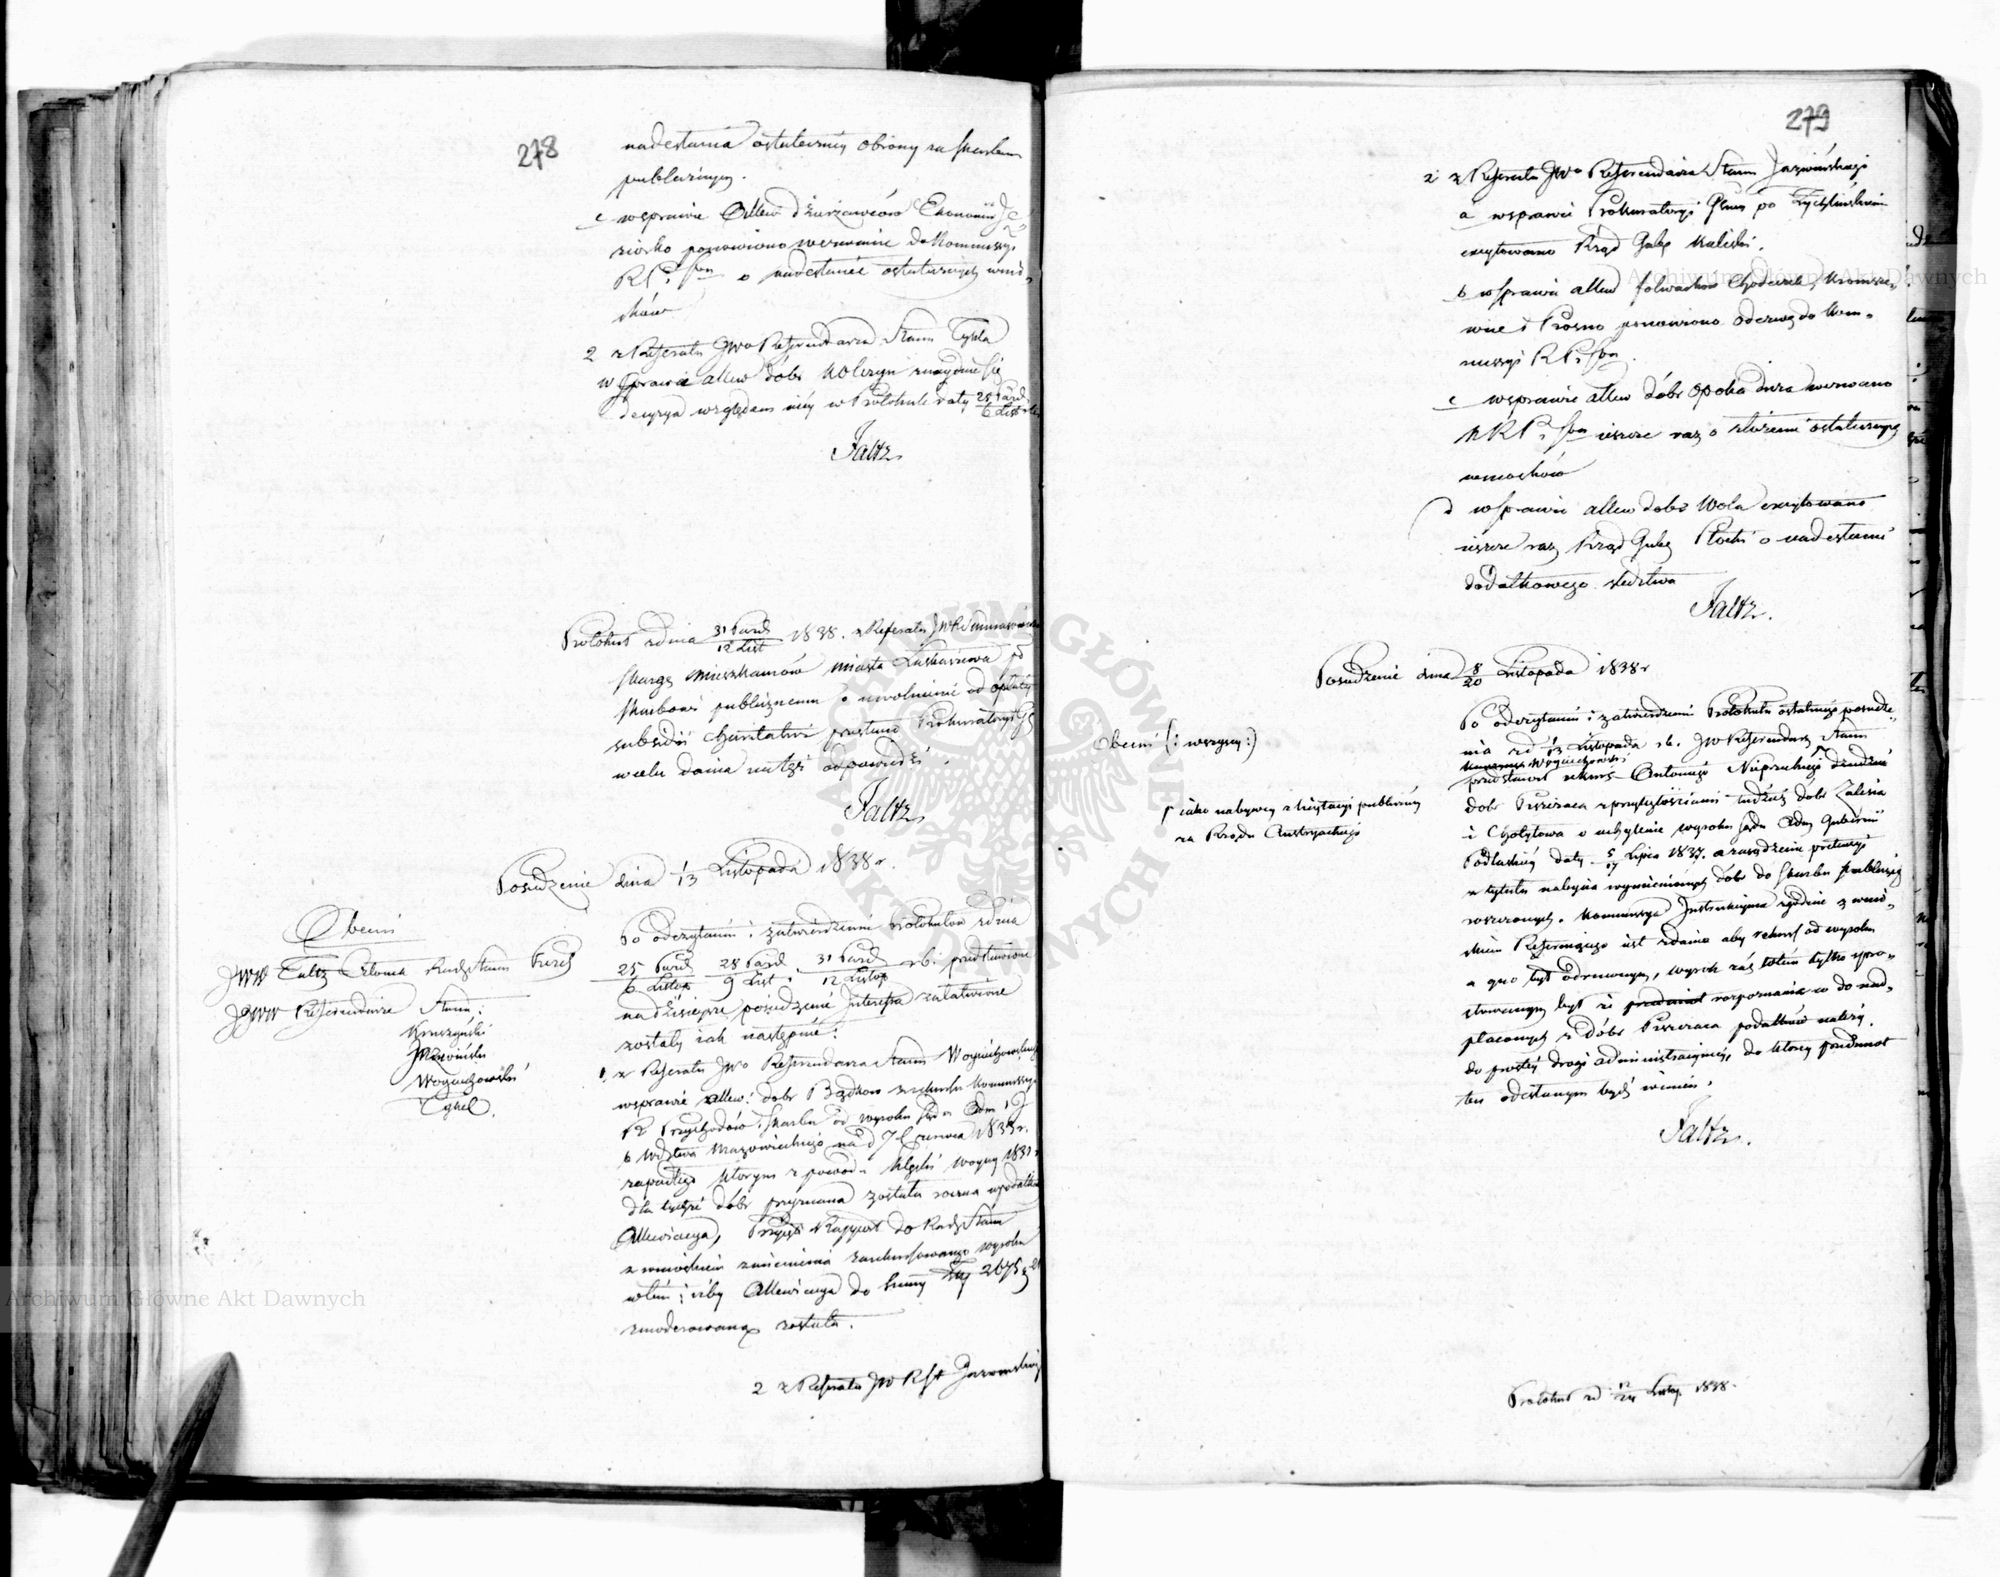 278
nadesłania ostatecznej obrony za Skarbem
publicznym.
c w sprawie Allew Dzierżawców Ekonomii Je
ziorko ponowiono wezwanie do Kommissyi
R P i Sbu o nadesłanie ostatecznych wnio
sków
2 z Referatu JWo Referendarza Stanu Cykla
w Sprawie allew dóbr Kolczyn znayduie się
decyzya względem niey w Protokule daty 25 Paźd / 6 List
Faltz
Protokuł z dnia 31 Paźd / 12 List 1838. z Referatu JW
skargę mieszkańców miasta
Skarbowi publicznemu o uwolnienie od opłaty
subsidii charitativi Prokuratoryi
w celu dania na tęż odpowiedzi.
Faltz
Posiedzenie dnia 1/13 Listopada 1838 r.
Obecni
JWW Faltz Członek Rady Stanu Prezd
JWW Referendarze Stanu:
Kruszyński
Jazwiński
Woyciechowski
Cykel.
Po odczytaniu i zatwierdzeniu Protokułów z dnia
25 Paźd / 6 Listop 28 Paźd / 9 List i 31 Paźd / 12 Listop rb. przedstawione
na dzisieysze posiedzenie Interessa załatwione
zostały iak następuie:
1, z Referatu JWo Referendarza Stanu Woyciechowskiego
w sprawie allew: dóbr Bądkow z rekursu Kommissyi
R Przychodów Skarbu od wyroku Sądu Adm I J
b Wdztwa Mazowieckiego na d 7 Czerwca 1833 r.
zapadłego którym z powodu klęsk woyny 1831 r
dla tychże dóbr przyznana została roczna z podatków
Allewiacya, Przyięto Rapport do Rady Stanu
z wnioskiem zmienienia zarekursowanego wyroku
w tém: iżby Allewiacya do summy Złp 2675 g 21
zmoderowaną została.
2 z Referatu JW Rft Jazwińskiego
279
2 z Referatu JWo Referendarza Stanu Jazwińskiego
a w sprawie Prokuratoryi Glney po Zychlińskim
excytowano Rząd Gubę Kaliski.
b w sprawie allew folwarków Chodeczek, Kromsze
wice i Krosno ponowiono Odezwę do Kom=
missyi R P i Sbu.
c w sprawie allew dóbr Opoka duża wezwano
K R P i Sbu ieszcze raz o złożenie ostatecznych
wniosków
d w Sprawie allew dobr Wola excytowano
ieszcze raz Rząd Gubę Płocki o nadesłanie
dodatkowego śledztwa
Faltz.
Posiedzenie dnia 8/20 Listopada 1838 r
Obecni (: wszyscy :)
Po odczytaniu i zatwierdzeniu Protokułu ostatniego posiedze=
nia z d 1/13 Listopada rb. JW Referendarz Stanu
Woyciechowski
przedstawił rekurs Antoniego dziedzica
dobr Piszczaca z przyległościami tudzież dobr Zalesia
i Chotyłowa o uchylenie wyroku Sądu Adm Gubernii
Podlaskiey daty 5/17 Lipca 1837. a zasądzenie pretensyi
z tytułu nabycia wymienionych dóbr do Skarbu publicznego
roszczonych. Kommissya Instrukcyina zgodnie z wnio=
skiem Referuiącego iest zdania aby rekurs od wyroku
a quo był odrzuconym, wyrok zaś w tém tylko spro=
stowanym był że przedmiot rozpoznania co do nad=
płaconych z dobr Piszczaca podatków należy
do prostey drogi administracyiney, do którey przedmiot
ten odesłanym bydź winien.
Faltz.
iako nabywcy z licytacyi publiczney
za Rządu Austryackiego
Protokuł z d 12/24 Listop. 1838.
Archiwum Główne Akt Dawnych
Archiwum Główne Akt Dawnych
ARCHIWUM GŁÓWNE · AKT DAWNYCH ·